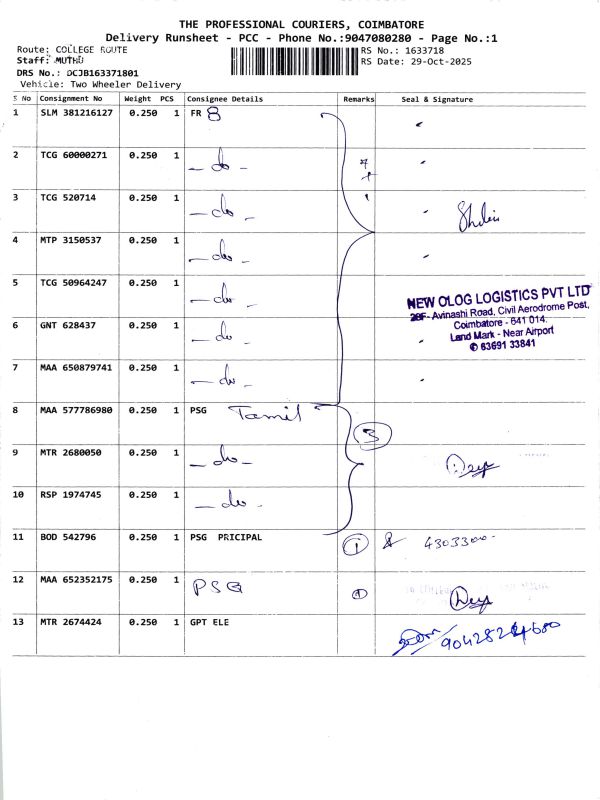 THE PROFESSIONAL COURIERS, COIMBATORE
Delivery Runsheet - PCC - Phone No.:9047080280 - Page No.:1
Route: COLLEGE ROUTE
RS No.: 1633718
Staff: MUTHU
RS Date: 29-Oct-2025
DRS No.: DCJB163371801
Vehicle: Two Wheeler Delivery
S No Consignment No Weight PCS Consignee Details Remarks Seal & Signature
1 SLM 381216127 0.250 1 FR 8
2 TCG 60000271 0.250 1 - do -
3 TCG 520714 0.250 1 - do -
4 MTP 3150537 0.250 1 - do -
5 TCG 50964247 0.250 1 - do -
NEW OLOG LOGISTICS PVT LTD
28F- Avinashi Road, Civil Aerodrome Post,
Coimbatore - 641 014.
Land Mark - Near Airport
✆ 63691 33841
6 GNT 628437 0.250 1 - do -
7 MAA 650879741 0.250 1 - do -
8 MAA 577786980 0.250 1 PSG Tamil 3
9 MTR 2680050 0.250 1 - do -
10 RSP 1974745 0.250 1 - do -
11 BOD 542796 0.250 1 PSG PRICIPAL 1 4303300-
12 MAA 652352175 0.250 1 PSG
13 MTR 2674424 0.250 1 GPT ELE